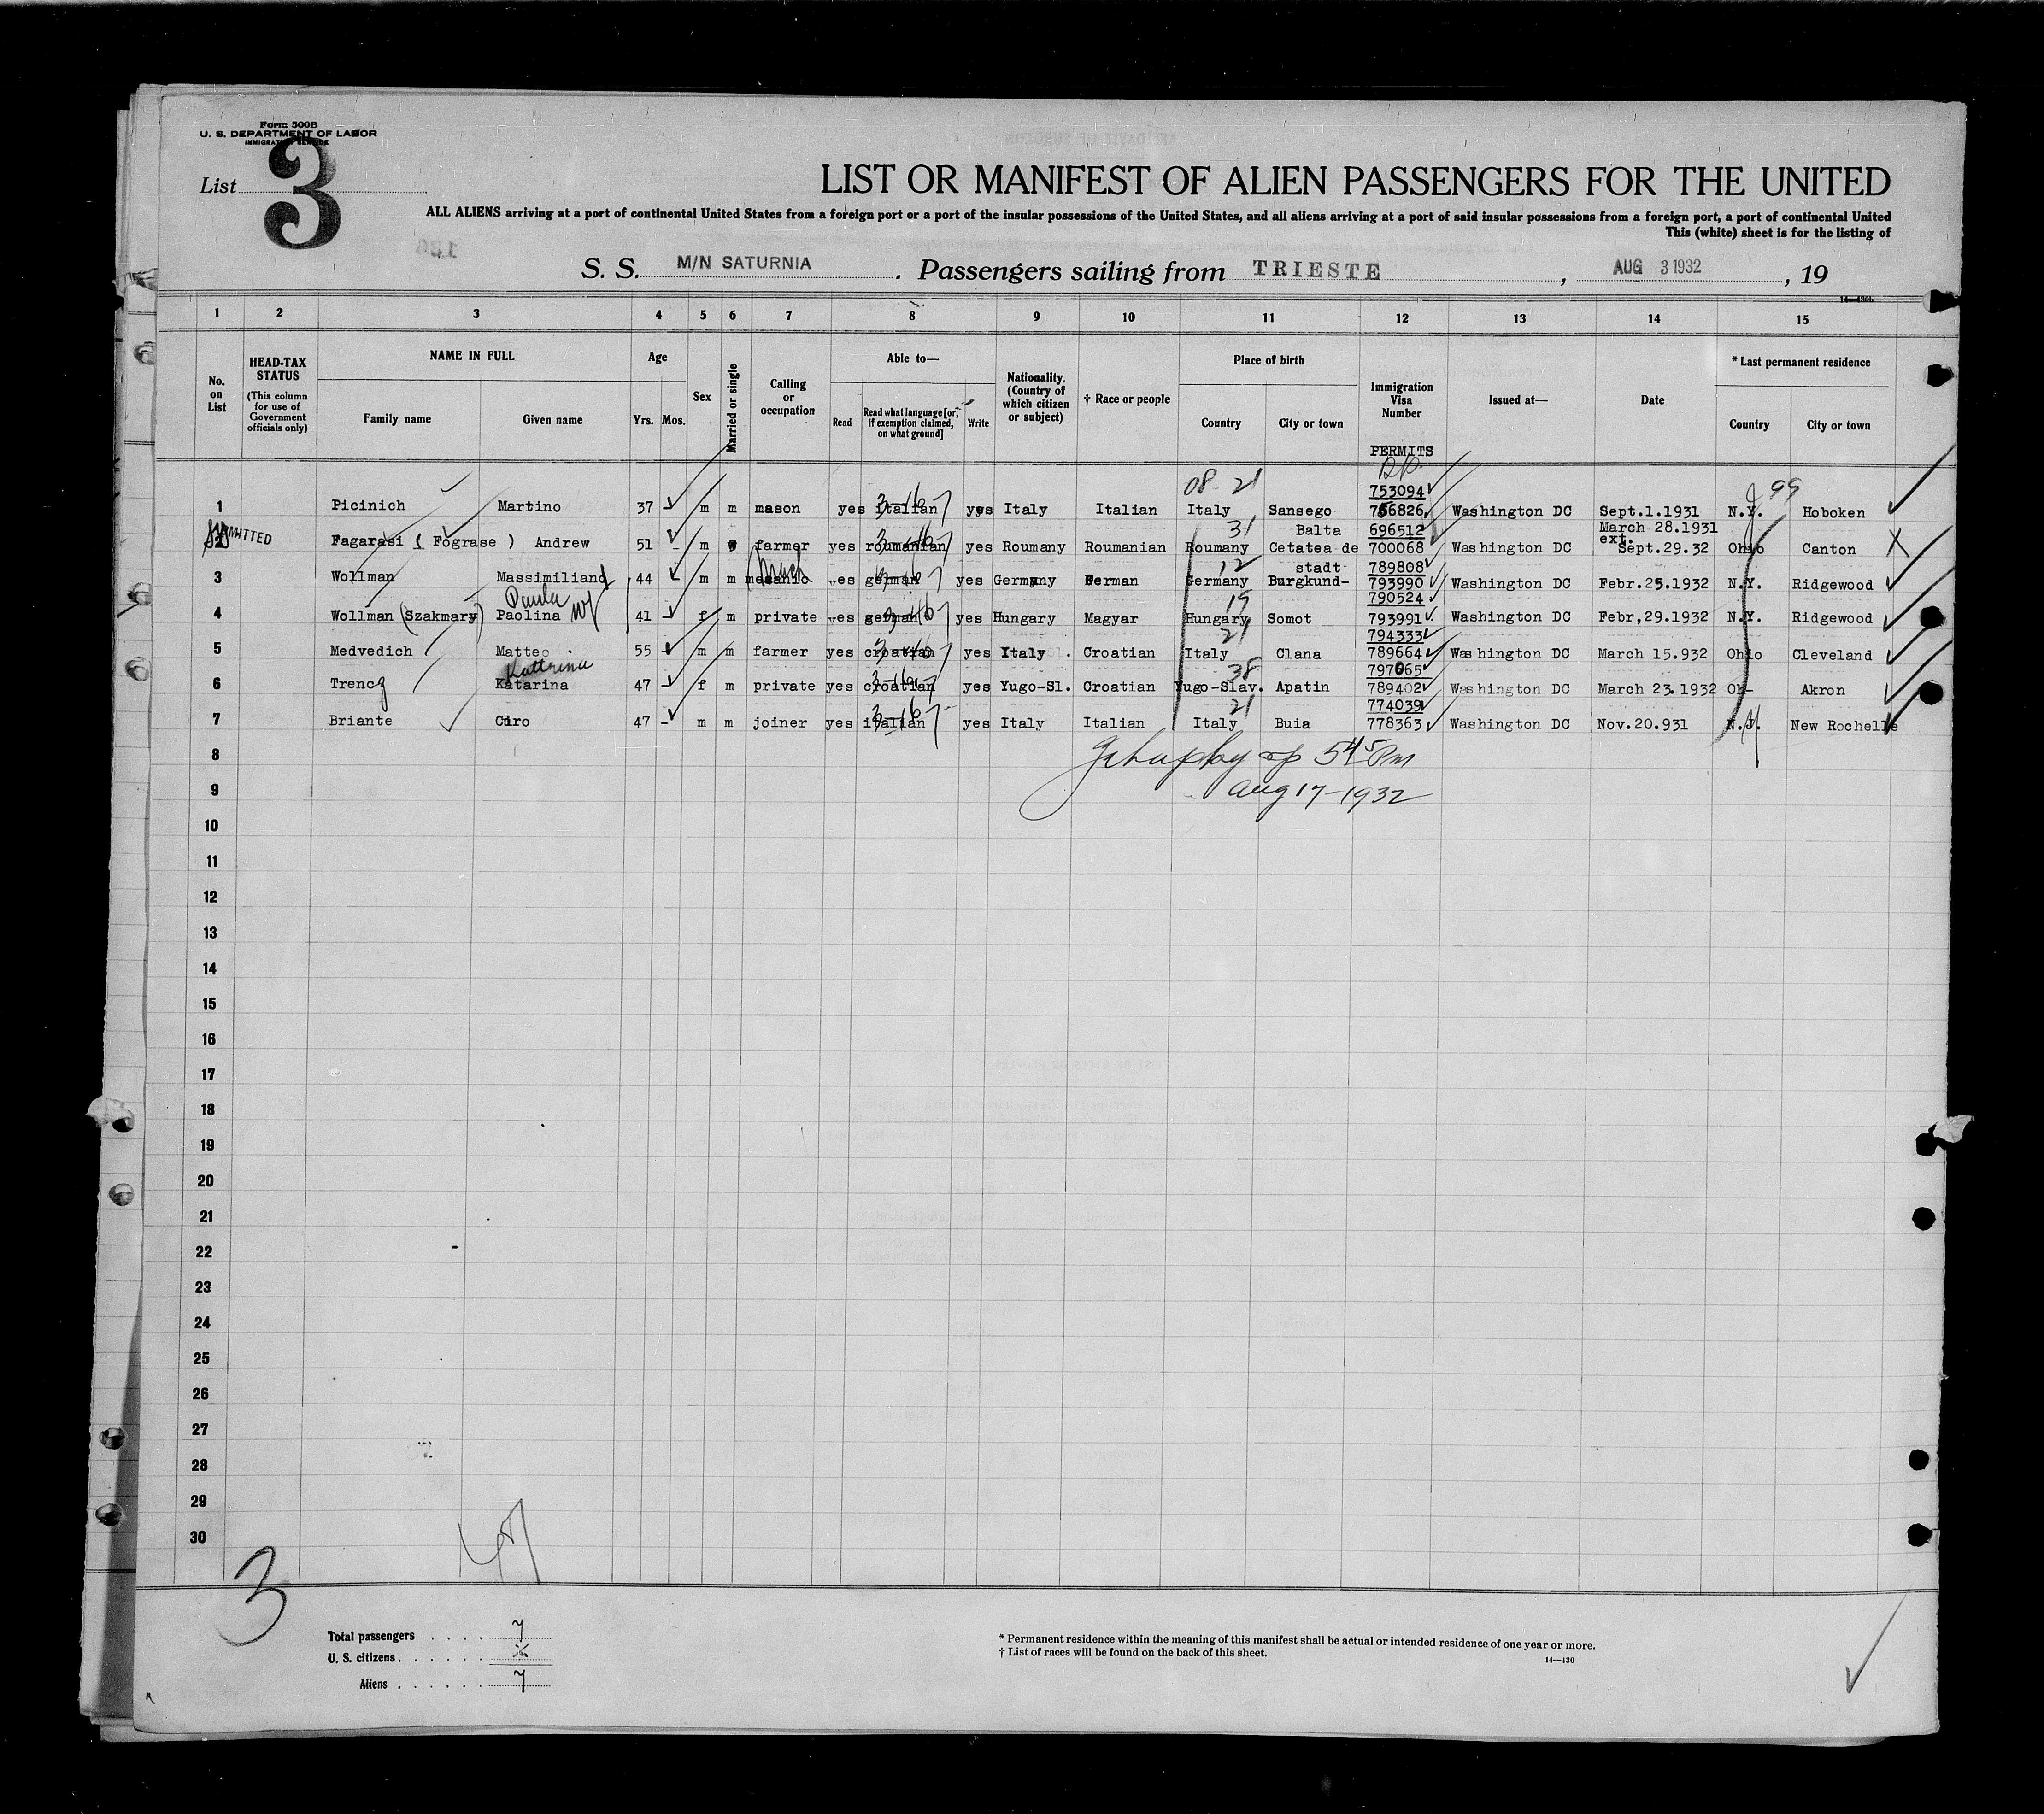 Form 500B
U. S. DEPARTMENT OF LABOR
IMMIGRATION SERVICE
List 3
LIST OR MANIFEST OF ALIEN PASSENGERS FOR THE UNITED
ALL ALIENS arriving at a port of continental United States from a foreign port or a port of the insular possessions of the United States, and all aliens arriving at a port of said insular possessions from a foreign port, a port of continental United
This (white) sheet is for the listing of
S. S. M/N SATURNIA . Passengers sailing from TRIESTE , AUG 3 1932 , 19
14—430b
1 2 3 4 5 6 7 8 9 10 11 12 13 14 15
No. on List
HEAD-TAX STATUS
(This column for use of Government officials only)
NAME IN FULL
Family name Given name
Age
Yrs. Mos.
Sex
Married or single
Calling or occupation
Able to—
Read Read what language [or, if exemption claimed, on what ground] Write
Nationality. (Country of which citizen or subject)
† Race or people
Place of birth
Country City or town
Immigration Visa Number
PERMITS
Issued at—
Date
* Last permanent residence
Country City or town
08 21 753094 99
1 Picinich Martino 37 m m mason yes italian 3-16 yes Italy Italian Italy Sansego 756826 Washington DC Sept.1.1931 N.Y. Hoboken
ADMITTED 31 Balta 696512 March 28.1931 ext.
2 Fagarasi ( Fograse ) Andrew 51 - m farmer yes roumanian yes Roumany Roumanian Roumany Cetatea de 700068 Washington DC Sept.29.32 Ohio Canton
12 stadt 789808
3 Wollman Massimiliano 44 m m mecanic yes german yes Germany German Germany Burgkund- 793990 Washington DC Febr.25.1932 N.Y. Ridgewood
Paula 19 790524
4 Wollman (Szakmary) Paolina wf 41 - f m private yes german yes Hungary Magyar Hungary Somot 793991 Washington DC Febr,29.1932 N.Y. Ridgewood
21 794333
5 Medvedich Matteo 55 m m farmer yes croatian yes Italy . Croatian Italy Clana 789664 Washington DC March 15.932 Ohio Cleveland
Kattrina 38 797065
6 Trencz Katarina 47 - f m private yes croatian yes Yugo-Sl. Croatian Yugo-Slav. Apatin 789402 Washington DC March 23.1932 Oh- Akron
21 774039
7 Briante Ciro 47 - m m joiner yes italian 3-16 yes Italy Italian Italy Buia 778363 Washington DC Nov.20.931 New Rochelle
8 545 Pm
9 Aug 17-1932
10
11
12
13
14
15
16
17
18
19
20
21
22
23
24
25
26
27
28
29
30
3
Total passengers . . . . 7
U. S. citizens . . . . . .
Aliens . . . . . . 7
* Permanent residence within the meaning of this manifest shall be actual or intended residence of one year or more.
† List of races will be found on the back of this sheet.
14—430